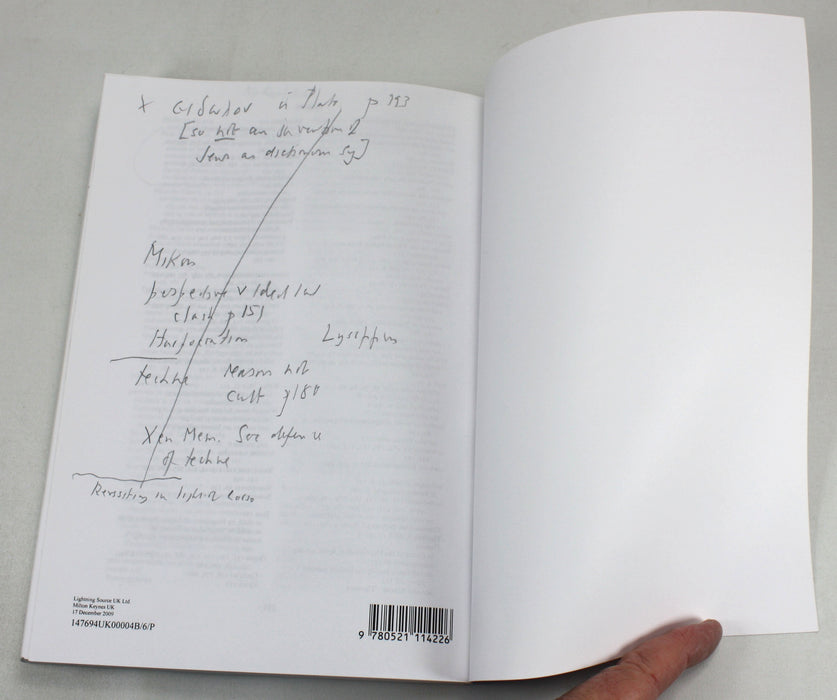 X in Plato, p 393
[so not an invention of
as
Mikon
perspective v ideal
clash p 151
Harpocration Lysippus
techne reason not
craft p 180
Xen Mem. Soc defence
of techne
Revisiting in light of
Lightning Source UK Ltd.
Milton Keynes UK
17 December 2009
147694UK00004B/6/P
9 780521 114226